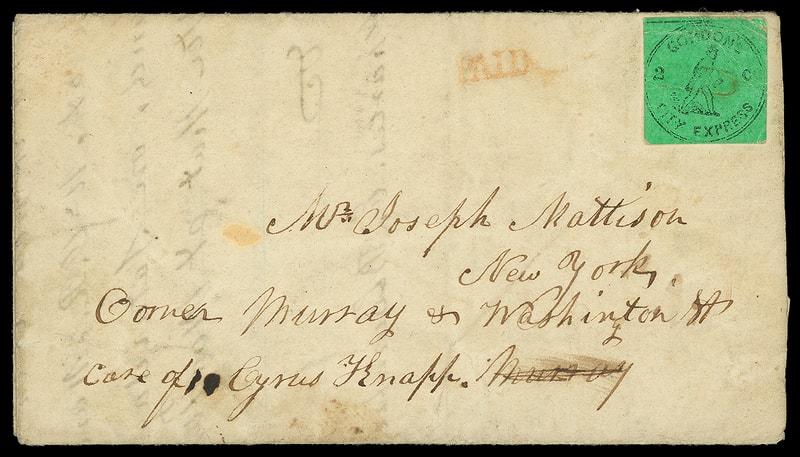 PAID
GORDON'S
2 C
CITY EXPRESS
Mr. Joseph Mattison
New York,
Corner Murray & Washington St
care of Cyrus Knapp. Murray